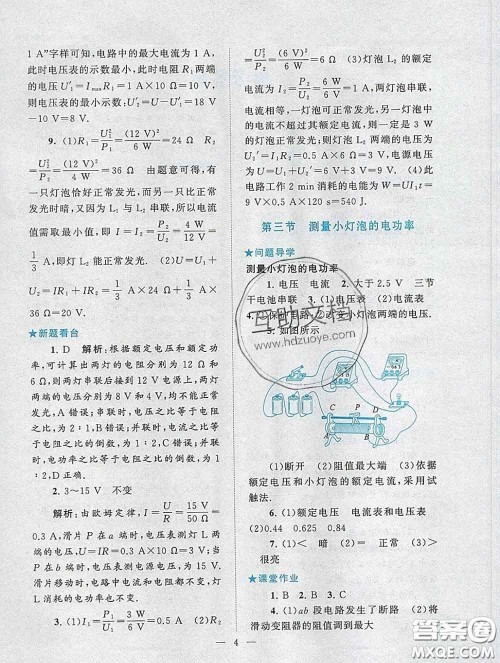 1 A”字样可知,电路中的最大电流为 1 A,
此时电压表的示数最小,此时电阻 R₁ 两端
的电压 U′₁=I₁R₁=1 A×10 Ω=10 V,
则电压表的最小示数:U′₂=U-U′₁=18 V
-10 V=8 V.
9. (1)R₁=U₁²/P₁=(12 V)²/6 W=24 Ω R₂
=U₂²/P₂=(12 V)²/4 W=36 Ω 由题意可得,一
只灯泡恰好正常发光,而另一只比正常
发光时暗,又因为 L₁ 与 L₂ 串联,所以电流
值需取最小值,即 I=I₂=P₂/U₂=4 W/12 V=
1/3 A,即灯 L₂ 能正常发光. (2)U=U₁+
U₂=IR₁+IR₂=1/3 A×24 Ω+1/3 A×
36 Ω=20 V.
★新题看台
1. D 解析:根据额定电压和额定功
率,可计算出两灯的电阻分别为 12 Ω
和 6 Ω,则两灯串联后接到 12 V 电源上,两
灯的电压分别为 8 V 和 4 V,均不能正常
发光,A 错误;串联时,电压之比等于电阻
之比,为 2∶1,B 错误;并联时,电流之
比等于电阻之比的倒数,为 1∶2,C 错误;并联
时,电功率之比等于电阻之比的倒数,为
1∶2,D 正确.
2. 3~15 V 不变
解析:由欧姆定律,I=U/R=15 V/50 Ω=
0.3 A,滑片 P 在 a 端时,电压表测灯 L 两
端的电压 U=IR=0.3 A×10 Ω=3 V;当
滑片在 b 端时,电压表测电源电压,为 15 V.
无论滑片如何移动,电压表测电流大小
不变,电路中电流不变,灯泡亮度不变.
3. (1)I₁=P₁/U₁=3 W/6 V=0.5 A (2)R₂
=U₂²/P₂=(6 V)²/6 W=6 Ω (3)灯泡 L₂ 的额定
电流为 I₂=P₂/U₂=6 W/6 V=1 A,两灯串联,
电流相等,一灯泡可正常发光,另一灯泡
中的电流不超过其额定电流,则一定是 3 W
的灯泡正常发光,则灯泡 L₂ 两端的电压为
U₂′=I₁R₂=0.5 A×6 Ω=3 V,电源电压为
U=U₁+U₂′=6 V+3 V=9 V (4)此
电路工作 2 min 消耗的电能为 W=UI₁t
=9 V×0.5 A×120 s=540 J.
第三节 测量小灯泡的电功率
★问题导学
测量小灯泡的电功率
1. 电压 电流 2. 大于 2.5 V 三节
干电池串联 3. (1)电压表 (2)电流表
4. ①保护电路 ②改变小灯泡两端的电压.
5. 如图所示
C P D
A B
6. (1)断开 (2)阻值最大端 (3)依据
额定电压和小灯泡的额定电流,采用试
触法.
6. (1)额定电压 电流表和电压表
(2)0.44 0.625 0.84
7. (1)< 暗 (2)= 正常 (3)>
很亮
★课堂作业
1. B 2. B 3. B
4. (1)ab 段电路发生了断路 (2)将
滑动变阻器的阻值调到最大
4
互助文档
www.hdzuoye.com
答案圈
MXQE.COM